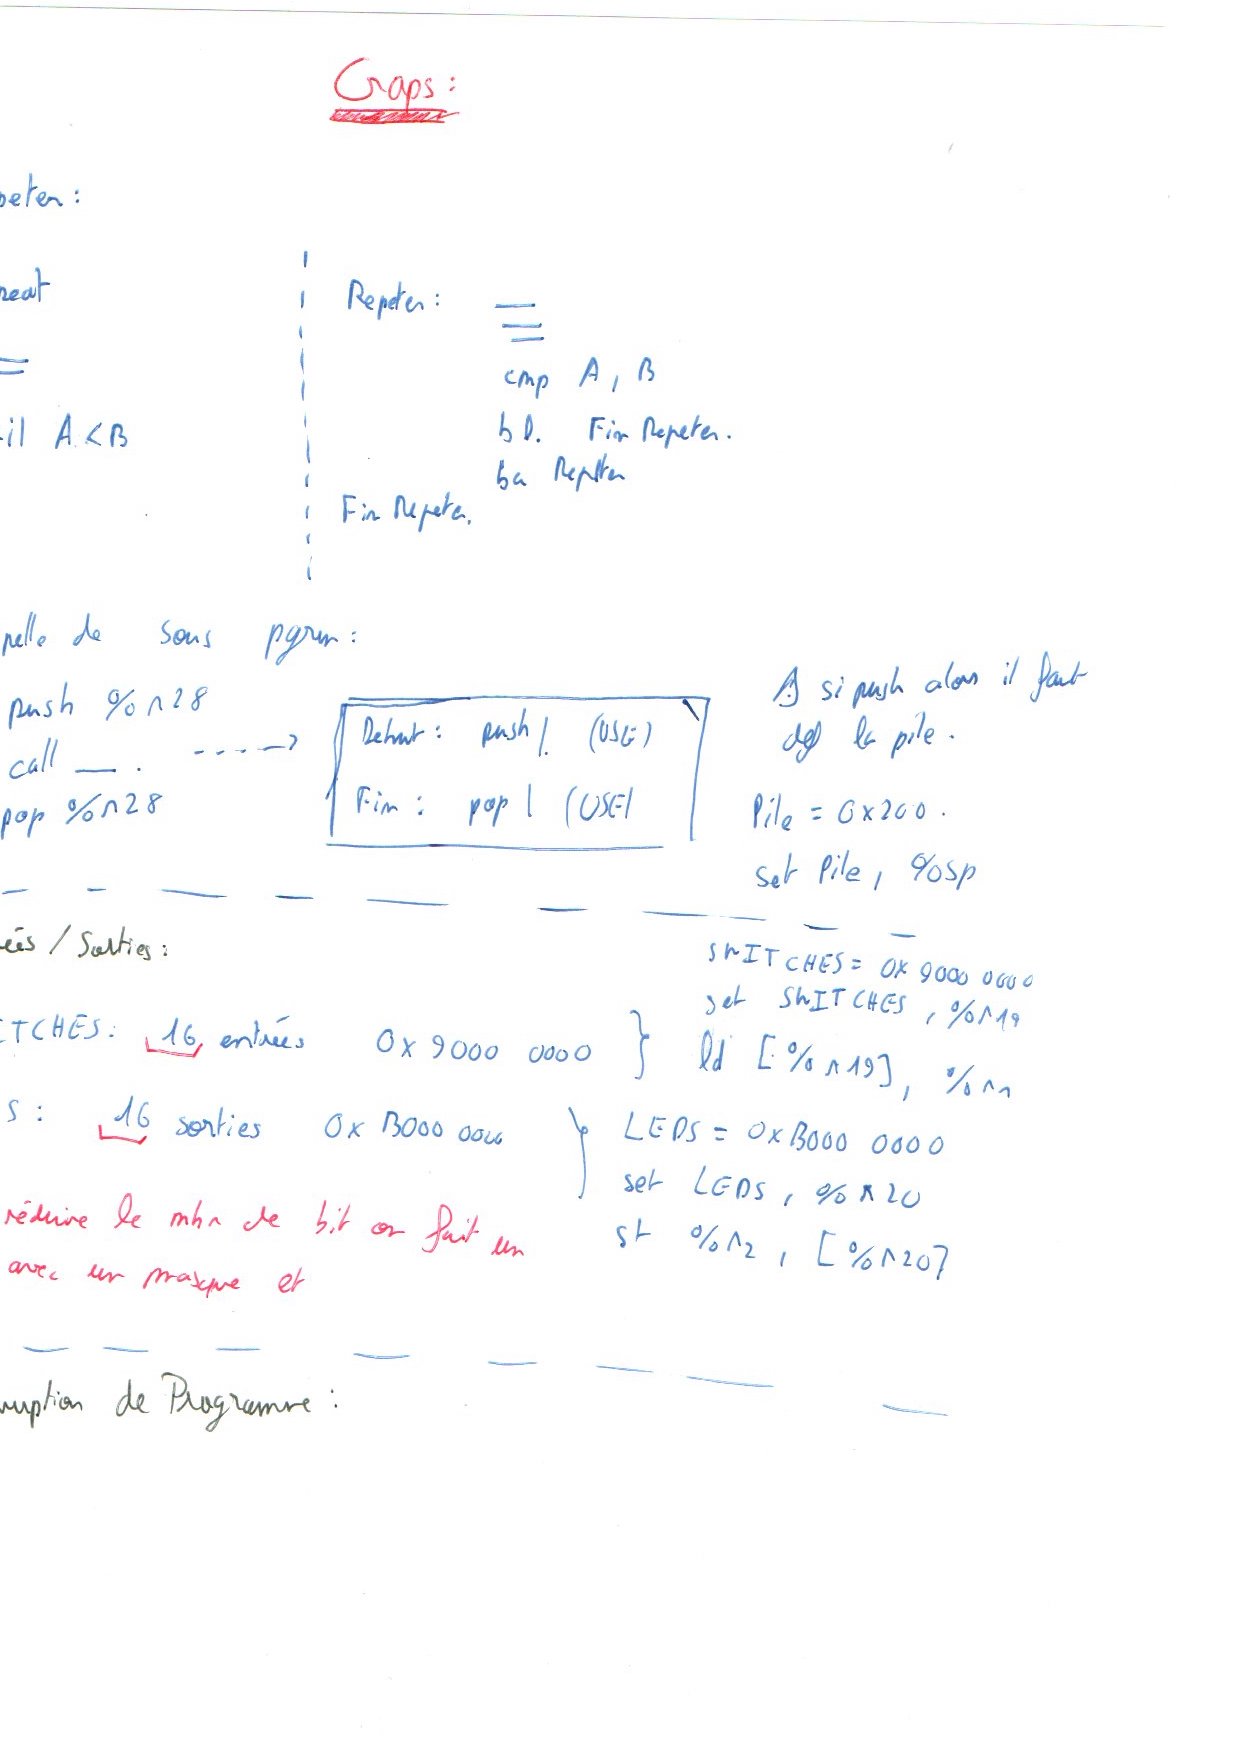 Craps :
peter :
Repeter :
cmp A, B
bl. Fin Repeter.
ba Repeter
Fin Repeter.
til A < B
pelle de sous pgrm :
push %r28
call __ .
pop %r28
Debut : push (USE)
Fin : pop (USE
si push alors il faut
def la pile.
Pile = 0x200.
set Pile, %sp
ées / Sorties :
ITCHES : 16 entrées 0x 9000 0000
SWITCHES = 0x 9000 0000
set SWITCHES, %r19
ld [%r19], %r1
S : 16 sorties 0x B000 0000
LEDS = 0xB000 0000
set LEDS, %r20
st %r2, [%r20]
réduire le nbr de bit on fait un
avec un masque et
ruption de Programme :